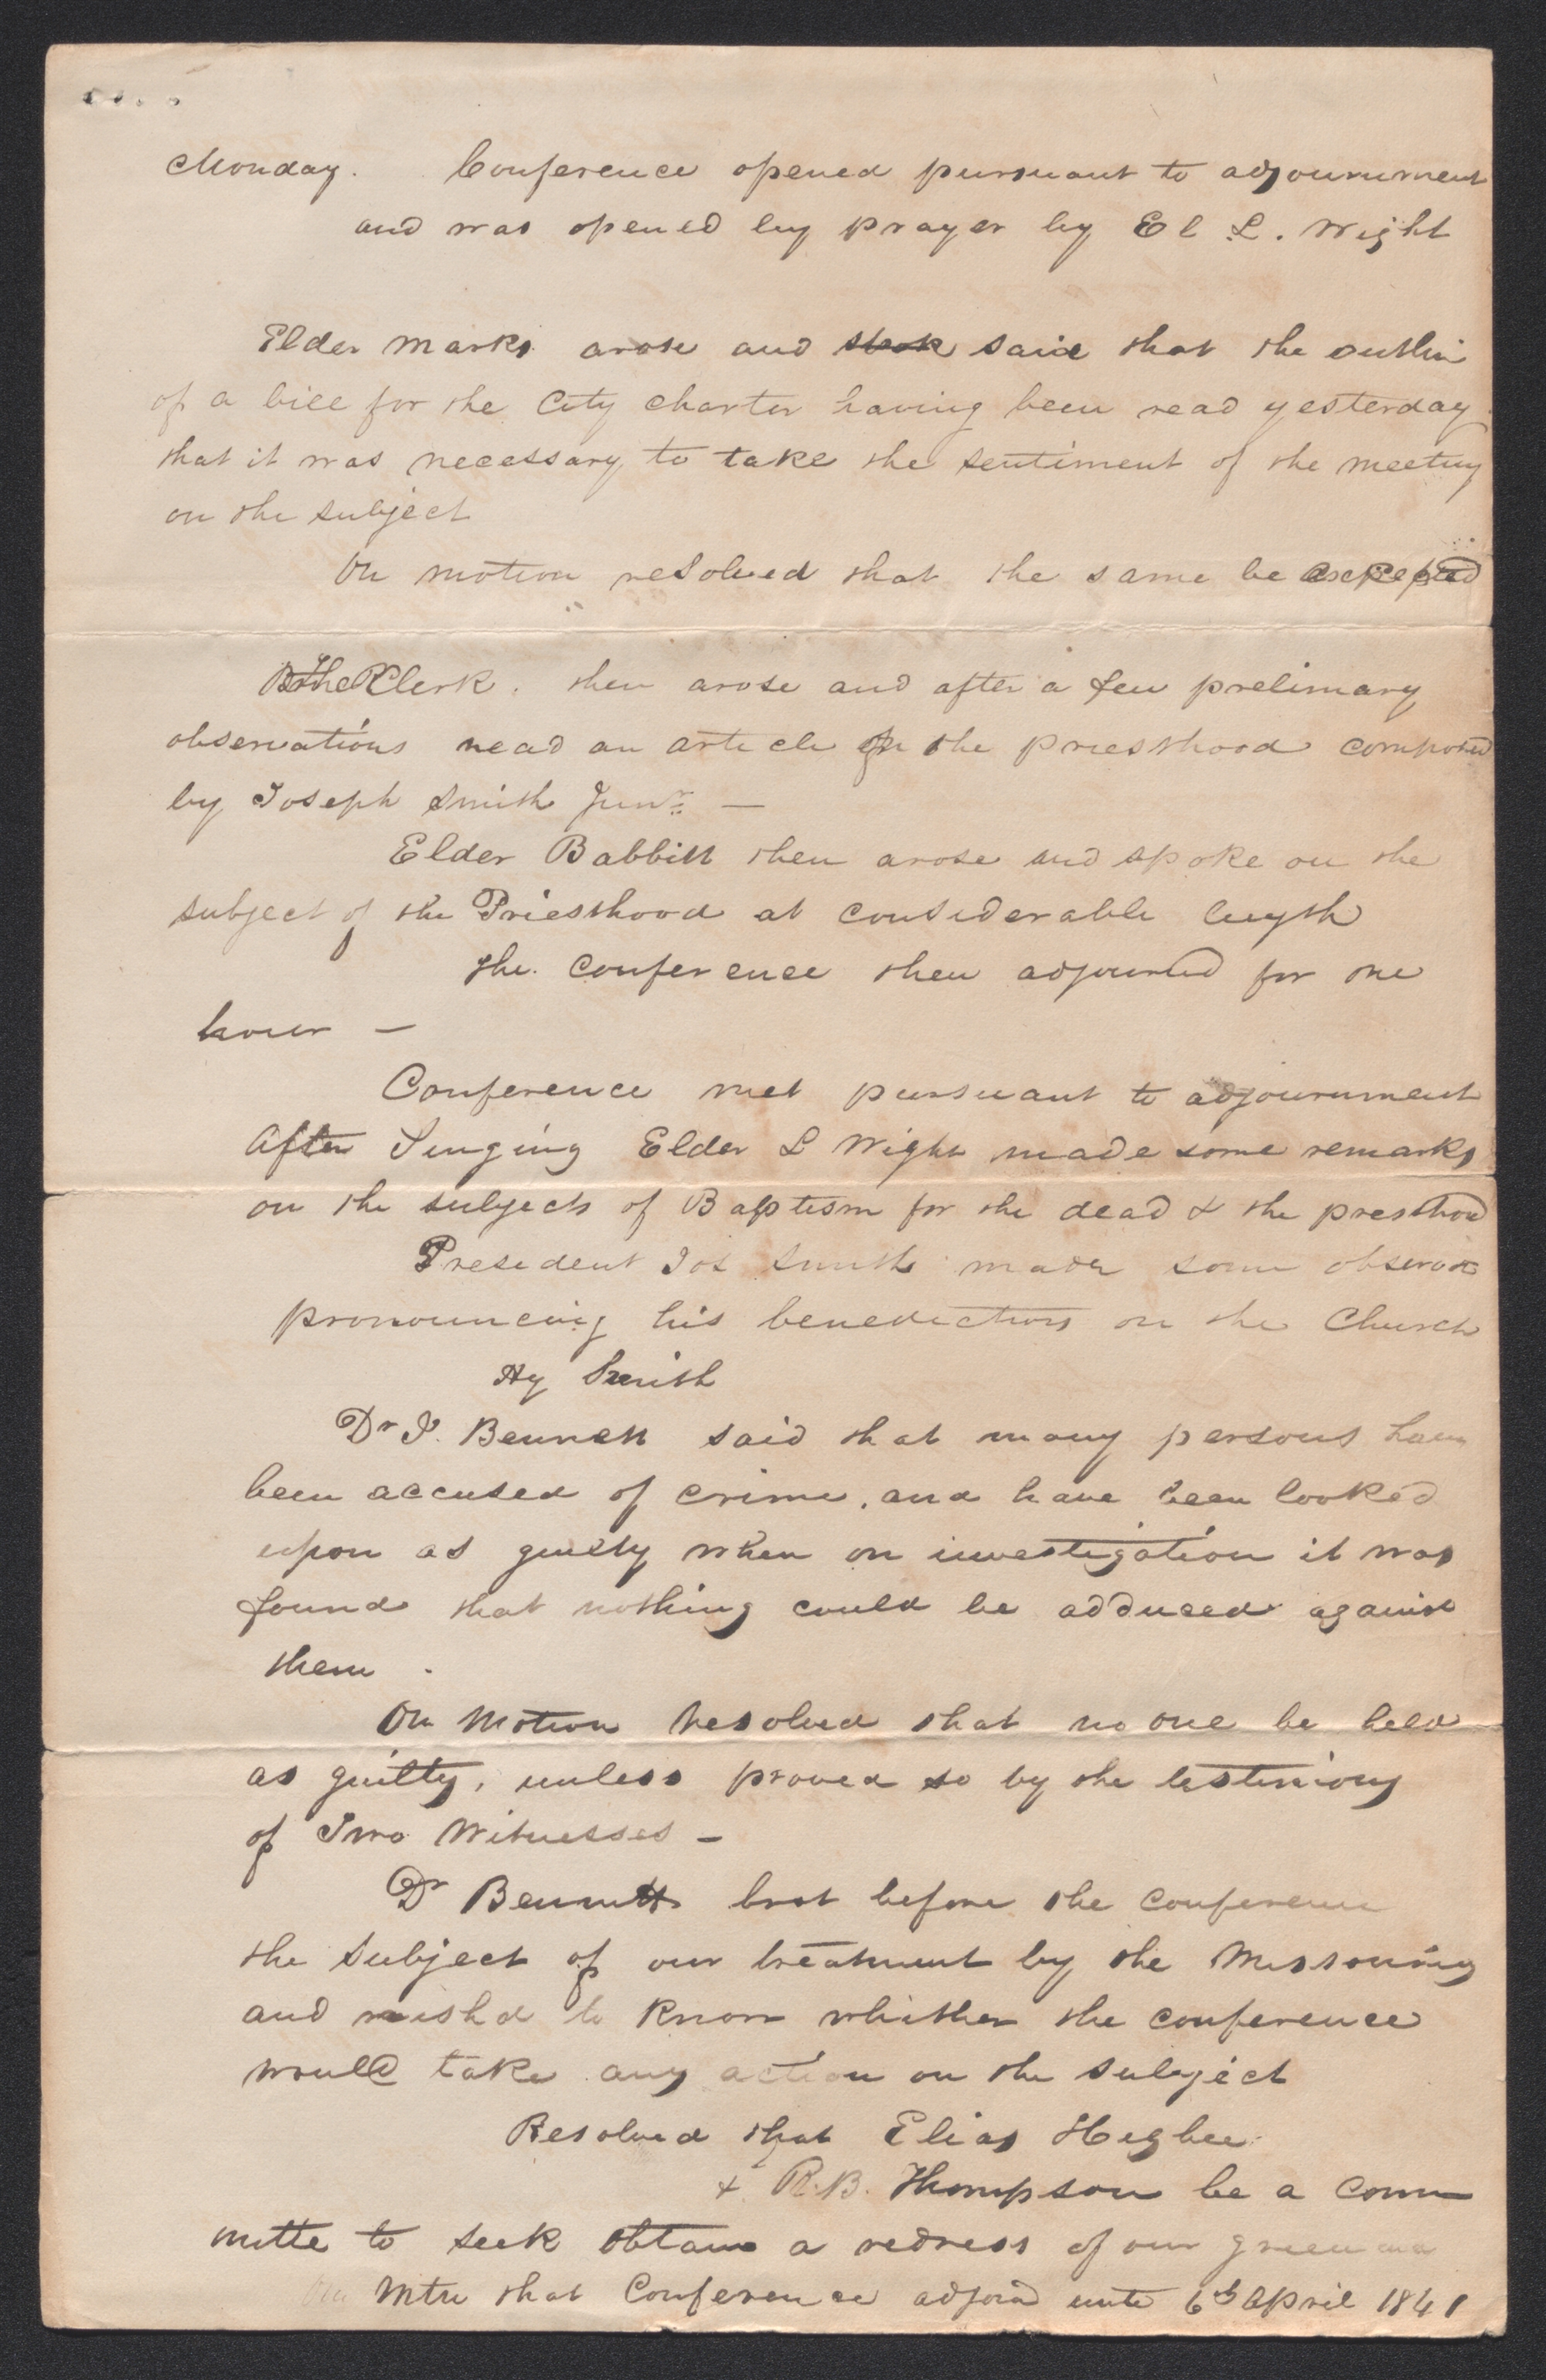 Monday. Conference opened pursuant to adjournment
and was opened by prayer by El L. Wight
Elder Marks arose and said that the outlin
of a bill for the City charter having been read yesterday
that it was necessary to take the sentiment of the meeting
on the subject
On motion resolved that the same be accepted
The Clerk. then arose and after a few prelimary
observations read an article on the priesthood composed
by Joseph Smith Junr. —
Elder Babbitt then arose and spoke on the
subject of the Priesthood at considerable length
the. conference then adjourned for one
hour —
Conference met pursuant to adjournment
After Singing Elder L Wight made some remarks
on the subjects of Baptism for the dead & the presthood
President Jos Smith made some
pronouncing his benediction on the Church
Hy Smith
Dr J. Bennett said that many persons have
been accused of crime, and have been looked
upon as guilty when on investigation it was
found that nothing could be adduced against
them .
On Motion Resolved that no one be held
as guilty, unless proved so by the testimony
of Two Witnesses —
Dr Bennett brot before the conference
the subject of our treatment by the
and wishd to know whither the conference
would take any action on the subject
Resolved that Elias Higbee
& R.B. Thompson be a Com
mitte to seek obtain a redress of our
On Mtn that Conference adjournd unto 6th April 1841